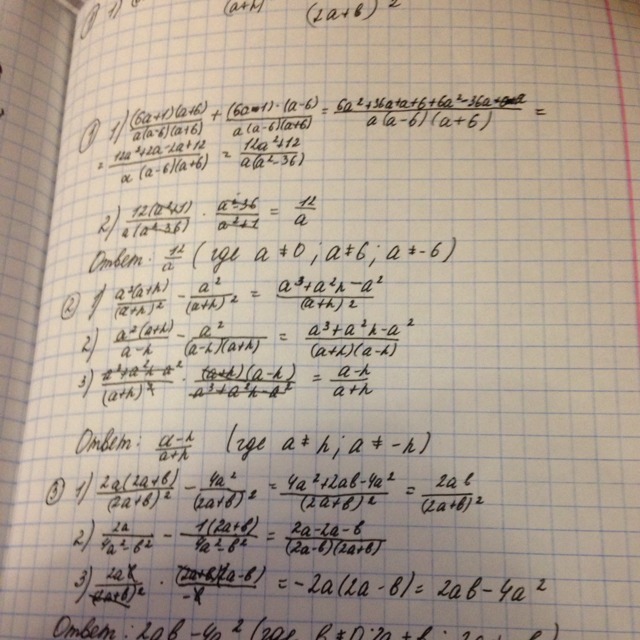 ① 1) (a+n) (2a+b)²
① 1) (6a+1)(a+6)/a(a-6)(a+6) + (6a-1)·(a-6)/a(a-6)(a+6) = 6a²+36a+a+6+6a²-36a+6-a/a(a-6)(a+6) =
= 12a²+2a-2a+12/a(a-6)(a+6) = 12a²+12/a(a²-36)
2) 12(a²+1)/a(a²-36) · a²-36/a²+1 = 12/a
Ответ: 12/a (где a≠0; a≠6; a≠-6)
② 1) a²(a+n)/(a+n)² - a²/(a+n)² = a³+a²n-a²/(a+n)²
2) a²(a+n)/a-n - a²/(a-n)(a+n) = a³+a²n-a²/(a+n)(a-n)
3) a³+a²n-a²/(a+n)² · (a+n)(a-n)/a³+a²n-a² = a-n/a+n
Ответ: a-n/a+n (где a≠n; a≠-n)
③ 1) 2a(2a+b)/(2a+b)² - 4a²/(2a+b)² = 4a²+2ab-4a²/(2a+b)² = 2ab/(2a+b)²
2) 2a/4a²-b² - 1(2a+b)/4a²-b² = 2a-2a-b/(2a-b)(2a+b)
3) 2ab/(2a+b)² · (2a+b)(2a-b)/-b = -2a(2a-b) = 2ab-4a²
Ответ: 2ab-4a² (где b≠0;